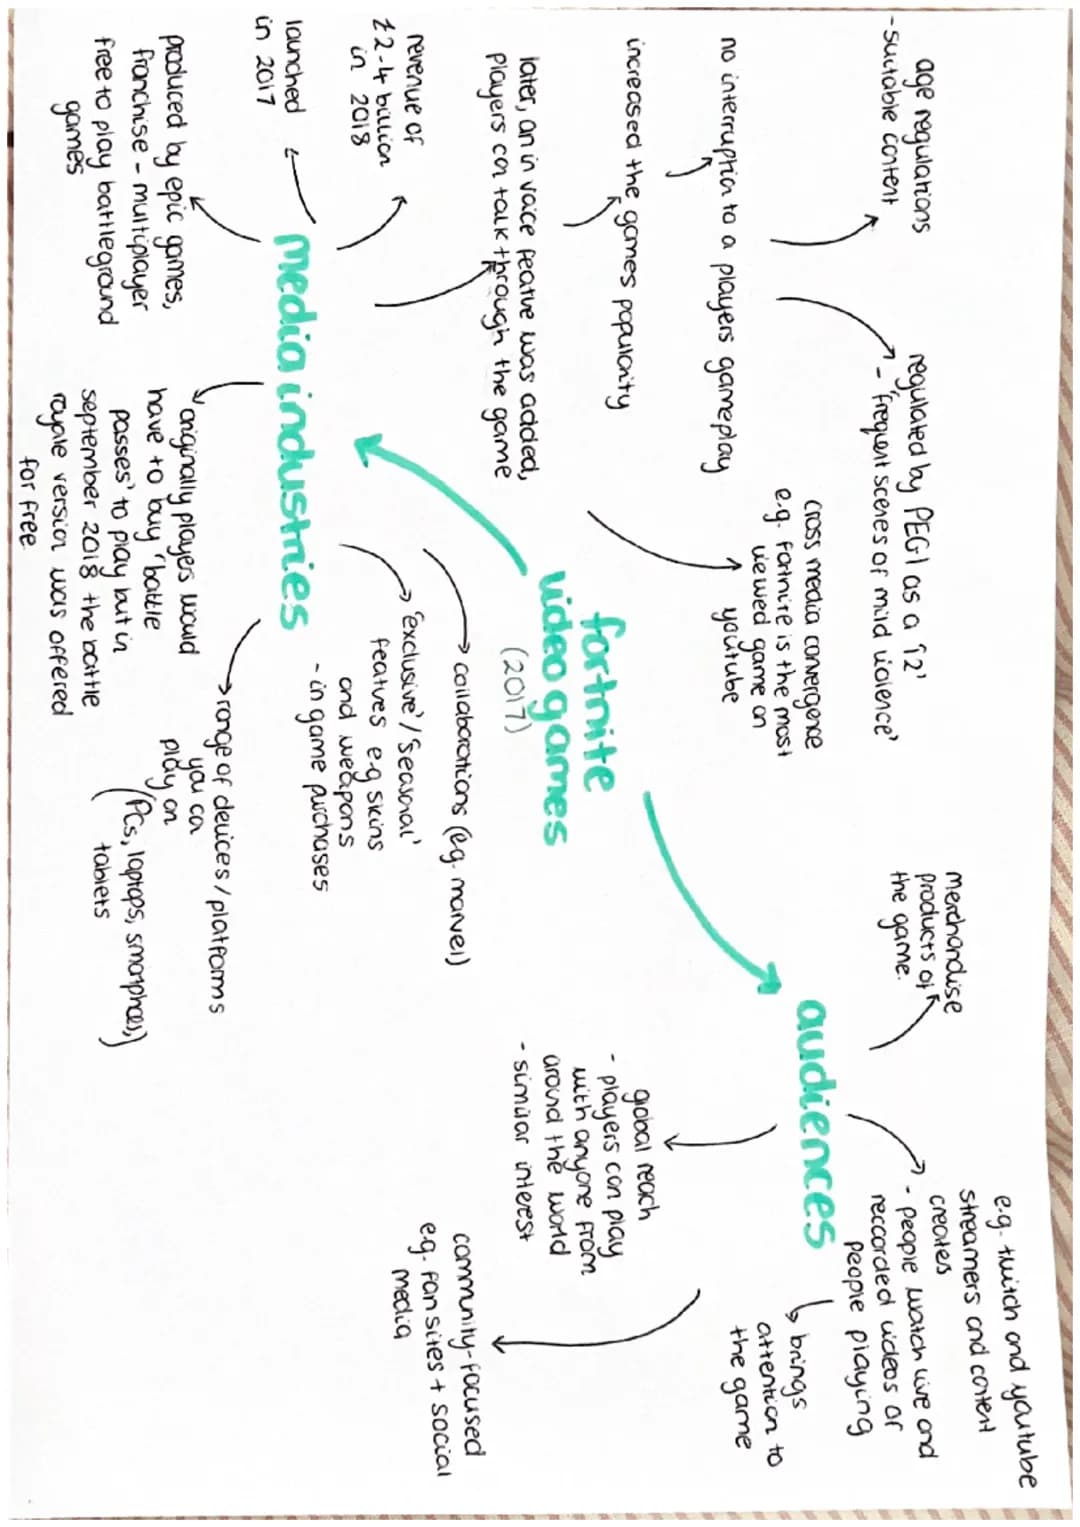 fortnite
video games
(2017)
media industries
launched
in 2017
revenue of
£2-4 billion
in 2018
later, an in voice feature was added,
players can talk through the game
increased the games popularity
no interruption to a players gameplay
age regulations
-suitable content
regulated by PEGI as a '12'
- 'frequent scenes of mild violence'
cross media convergence
e.g. fortnite is the most
viewed game on
youtube
produced by epic games,
franchise - multiplayer
free to play battleground
games
originally players would
have to buy 'battle
passes' to play but in
september 2018 the battle
royale version was offered
for free.
range of devices / platforms
you can
play on
(PCs, laptops, smartphones,)
tablets
'exclusive' / 'seasonal'
features e.g skins
and weapons
- in game purchases
collaborations (e.g. marvel)
audiences
merchandise
products of
the game.
e.g. twitch and youtube
streamers and content
creates
- people watch live and
reccorded videos of
people playing
brings
attention to
the game
global reach
- players can play
with anyone from
around the world
- similar interest
community-focused
e.g. fan sites + social
media